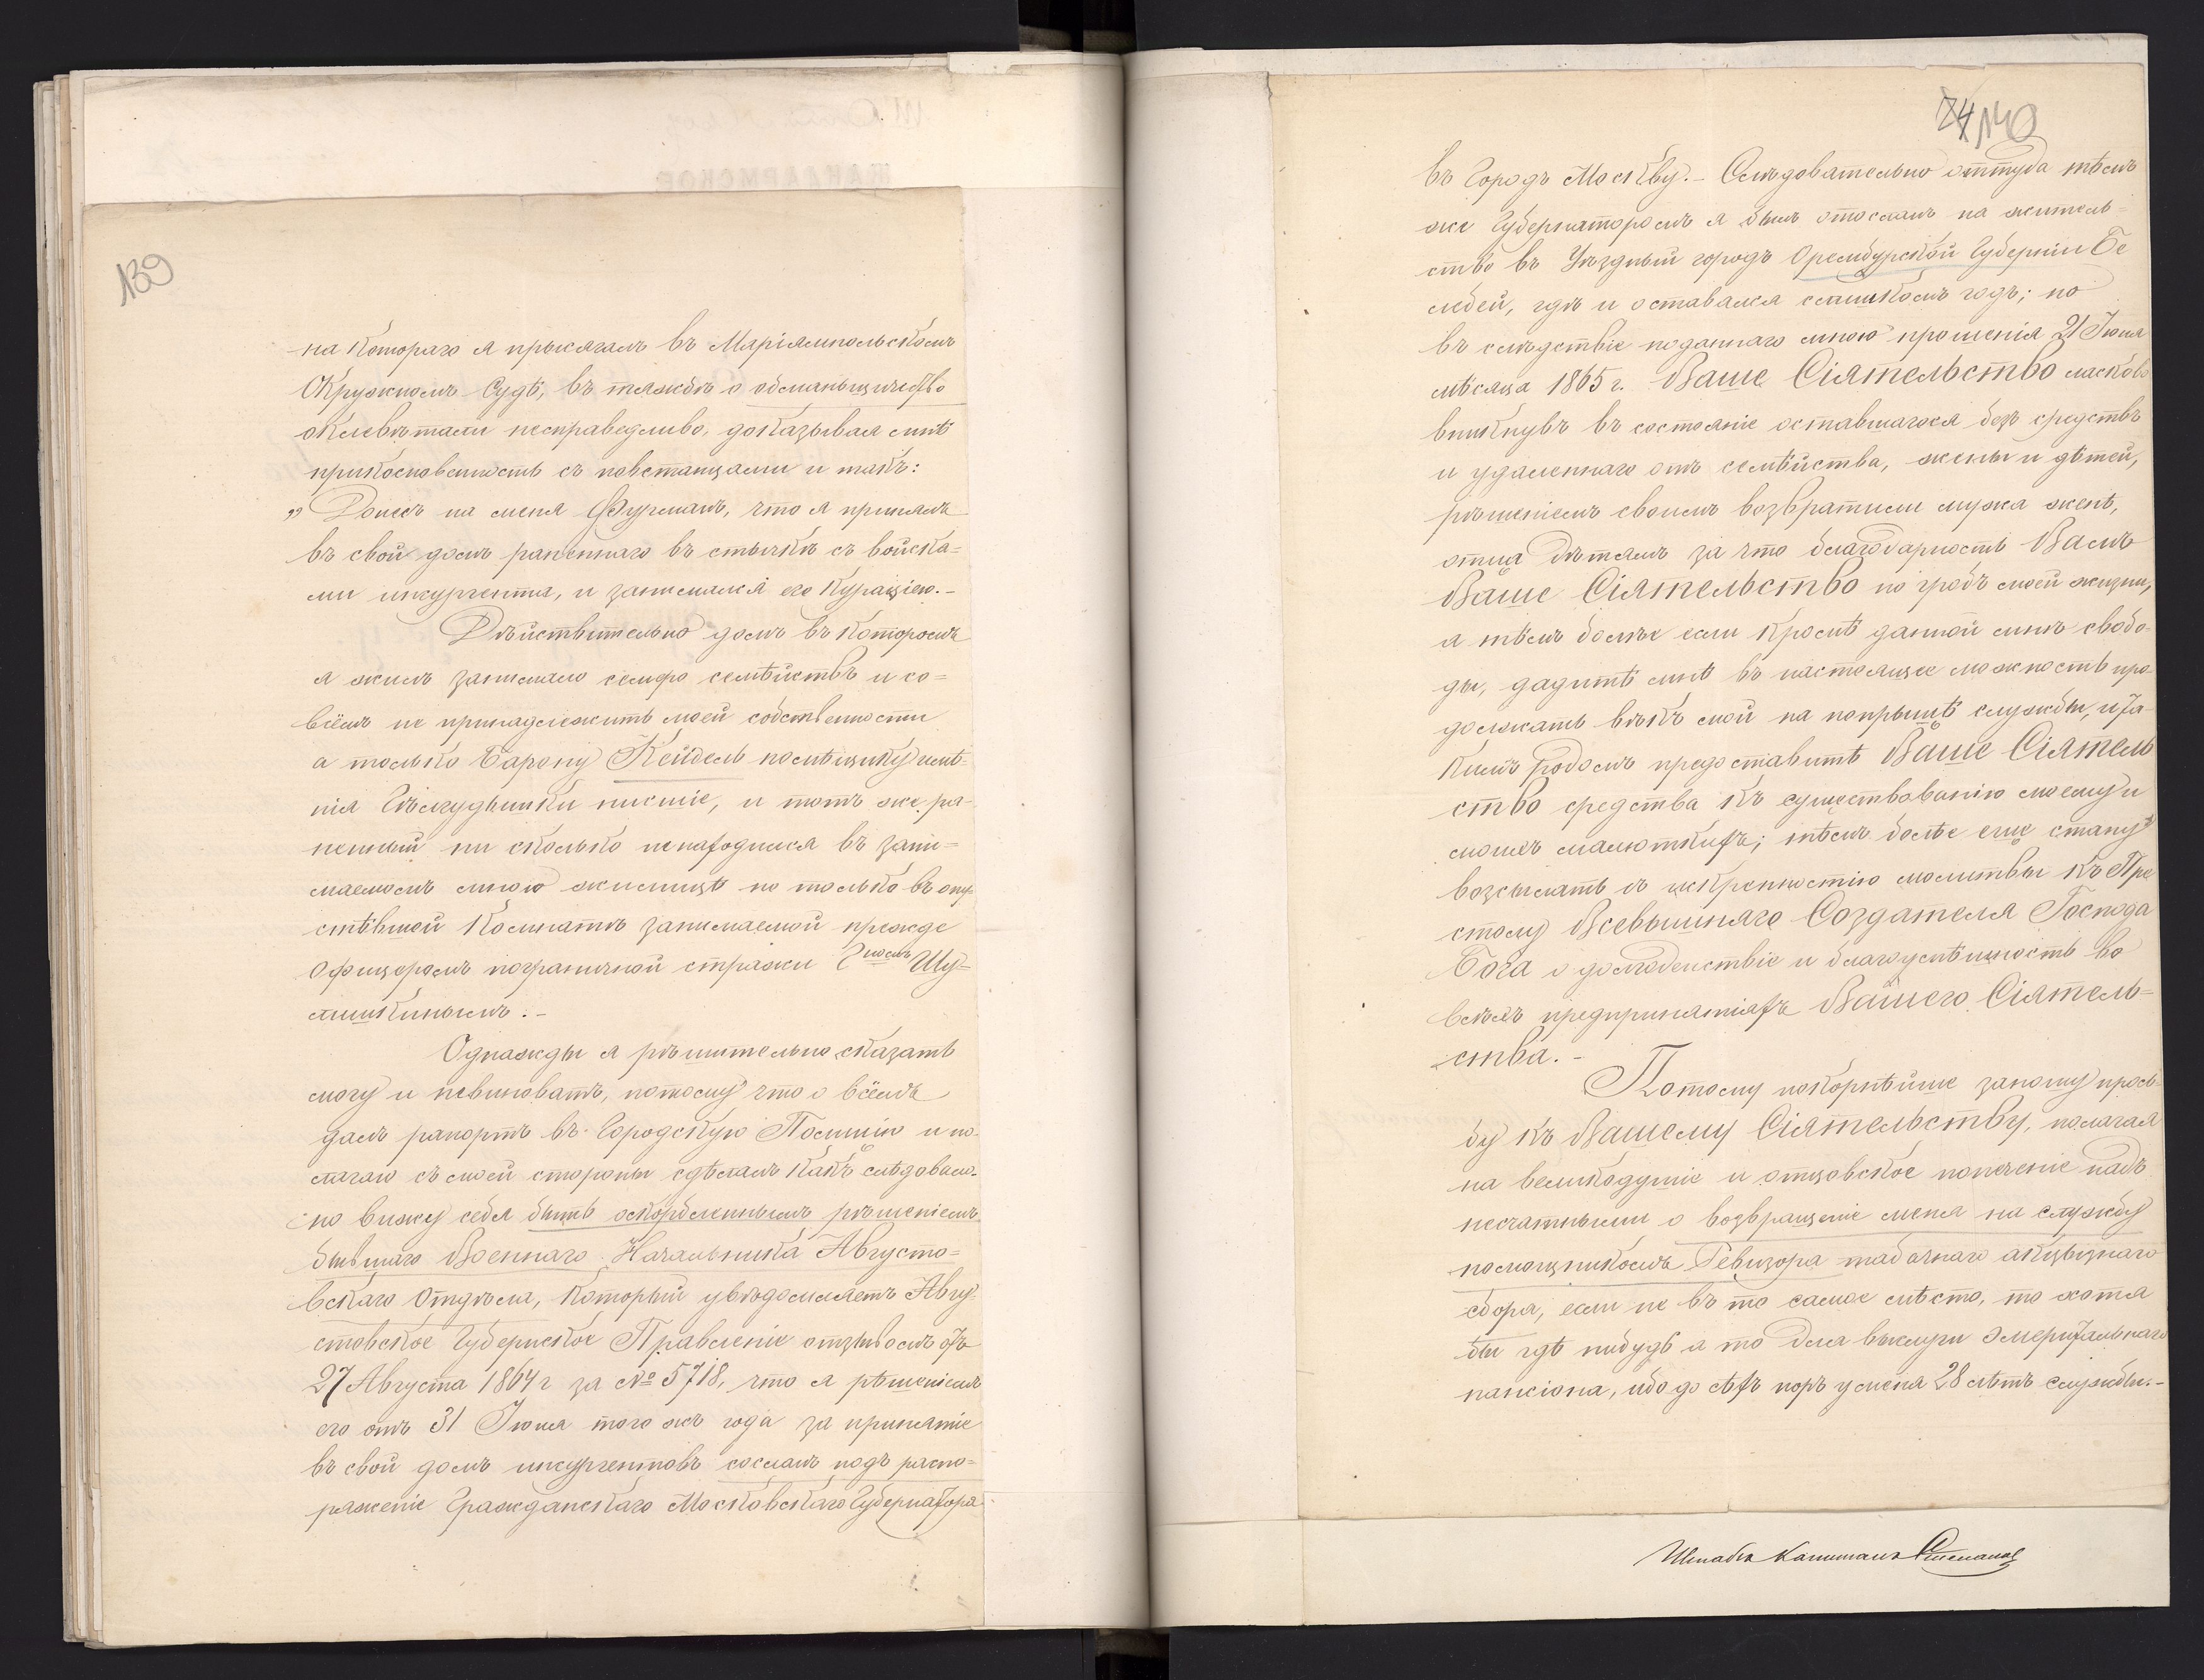 139
на котораго я прысягалъ въ Маріямпольскомъ
Окружномъ Судѣ, въ тяжбѣ о обманыщичество
оклевѣтали несправедливо, доказывая мнѣ
прикосновенность съ повстанцами и такъ:
„Донесъ на меня Фурманъ, что я принялъ
въ свой домъ раненнаго въ стычкѣ съ войска=
ми инсургента, и занимался его Кураціею.-
Дѣйствительно домъ въ которомъ
я жилъ занимало семеро семѣйствъ и со=
всѣмъ не принадлежитъ моей собственности
а только Барону Кейдель помѣщику имѣ-
нія нисшіе, и тотъ же ра-
ненный ни сколько ненаходился въ зани=
маемомъ мною жилищѣ но только въ опу-
стѣвшой Комнатѣ занимаемой прежде
Офицеромъ пограничной стражи Гномъ Шу=
лишкинымъ.-
Однажды я рѣшительно сказать
могу и невиноватъ, потому что о всёмъ
далъ рапортъ въ Городскую Полицію и по-
лагаю съ моей стороны сдѣлалъ какъ слѣдовало.
но вижу себя быть оскорбленнымъ рѣшеніемъ
бывшаго Военнаго Начальника Августо=
вскаго Отдѣла, который увѣдомляетъ Авгу-
стовское Губернское Правленіе отзывомъ отъ
27 Августа 1864 г за № 5718, что я рѣшеніемъ
его отъ 31 Іюля того жъ года за принятіе
въ свой домъ инсургентовъ сосланъ подъ распо=
ряженіе Гражданскаго Московскаго Губернатора
74 140
въ Городъ Москву.- Слѣдовательно оттуда тѣмъ
же Губернаторомъ я былъ отосланъ на житель=
ство въ Уѣздный городъ Оренбурской Губерніи Бе
лебей, гдѣ и оставался слишкомъ годъ; но
въ слѣдствіе поданнаго мною прошенія 21 Іюня
мѣсяца 1865 г. Ваше Сіятельство ласково
вникнувъ въ состояніе оставшагося безъ средствъ
и удаленнаго отъ семѣйства, жены и дѣтей,
рѣшеніемъ своимъ возвратили мужа женѣ,
отца дѣтямъ за что благодарность Вамъ
Ваше Сіятельство по гробъ моей жизни,
а тѣмъ болѣе если кромѣ данной мнѣ свобо-
ды, дадитѣ мнѣ въ настоящее можность про-
должать вѣкъ мой на попрыщѣ службы, и та-
кимъ родомъ предоставитѣ Ваше Сіятель
ство средства къ существованію моему и
моихъ малюткихъ; тѣмъ болѣе еще стану
возсылать съ искренностію молитвы къ Пре
столу Всевышняго Создателя Господа
Бога о долгоденствіе и благоуспѣшность во
всѣхъ предпринятіяхъ Вашего Сіятель=
ства.-
Потому покорнѣйше заношу прозь-
бу къ Вашему Сіятельству, полагая
на великодушіе и отцовское попеченіе надъ
несчатными о возвращеніе меня на службу
помощникомъ Ревизора табачнаго акцызнаго
сбора, если не въ то самое мѣсто, то хотя
бы гдѣ нибудь а то для выслуги Эмеритальнаго
пансіона, ибо до сѣхъ поръ у меня 28 лѣтъ службы.-
Штабсъ Капитанъ Степановъ